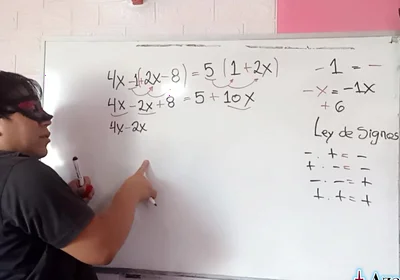 4x -1(+2x-8) = 5 (1+2x)
4x - 2x + 8 = 5 + 10x
4x - 2x
-1 = -
-x = -1x
+6
Ley de Signos
- · + = -
+ · - = -
- · - = +
+ · + = +